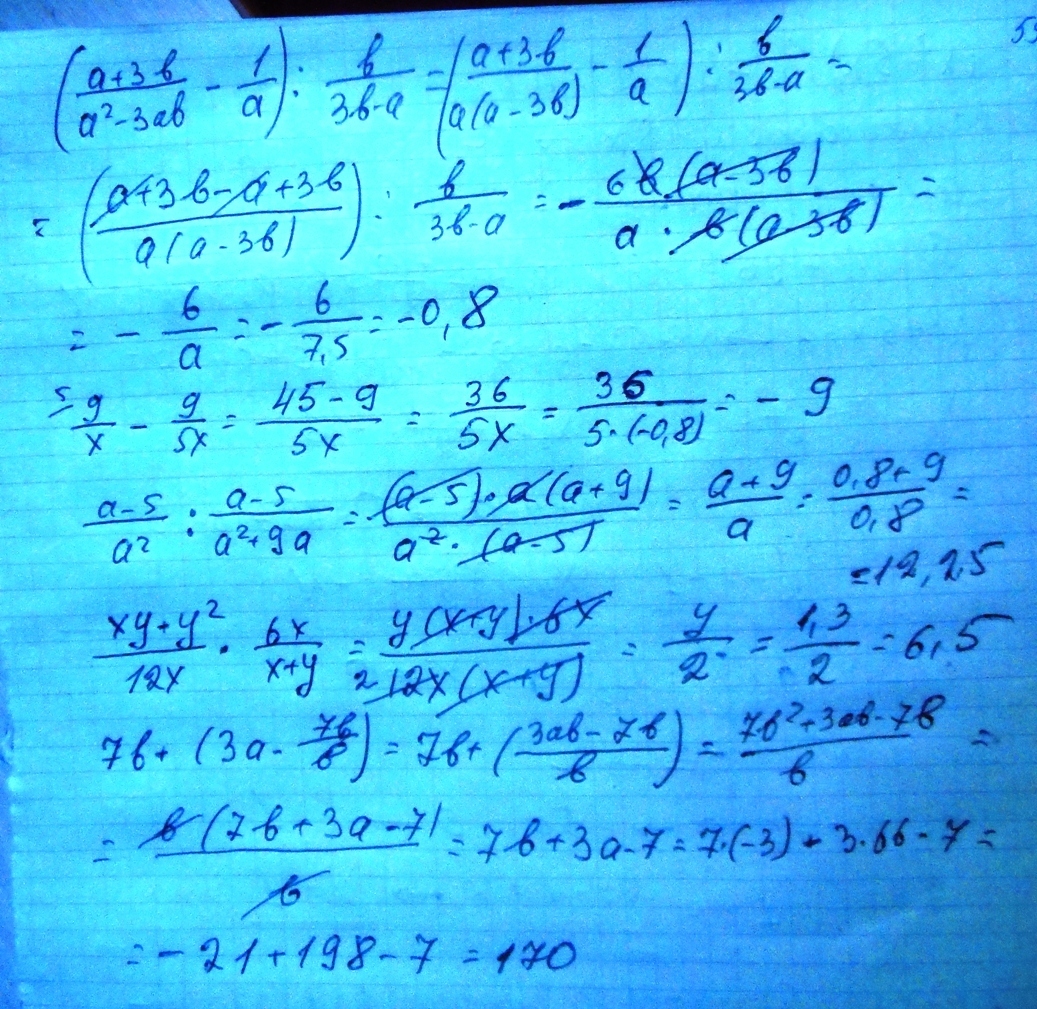 (a+3в/a²-3aв - 1/a) : в/3в-a = (a+3в/a(a-3в) - 1/a) : в/3в-a =
= (a+3в-a+3в/a(a-3в)) : в/3в-a = - 6в(a-3в)/a·в(a-3в) =
= - 6/a = - 6/7,5 = -0,8
5 9/x - 9/5x = 45-9/5x = 36/5x = 36/5·(-0,8) = - 9
a-5/a² : a-5/a²+9a = (a-5)·a(a+9)/a²·(a-5) = a+9/a = 0,8+9/0,8 =
=12,25
xy+y²/12x · 6x/x+y = y(x+y)·6x/2 12x(x+y) = y/2 = 1,3/2 = 6,5
7в+ (3a- 7в/в) = 7в+ (3aв-7в/в) = 7в²+3aв-7в/в =
= в(7в+3a-7)/в = 7в+3a-7 = 7·(-3) + 3·66-7 =
= -21+198-7 = 170